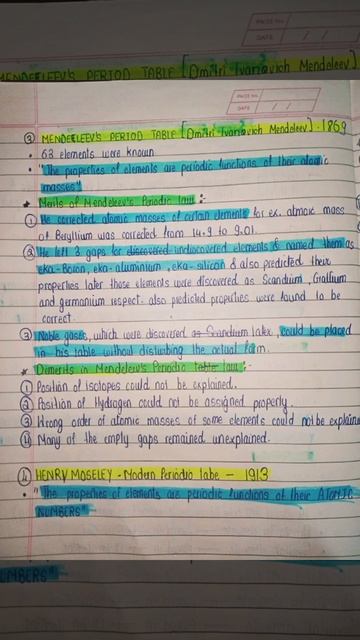 PAGE No.
DATE / /
MENDELEEV'S PERIOD TABLE [Dmitri Ivanovich Mendeleev]
PAGE No.
DATE / /
③ MENDELEEV'S PERIOD TABLE [Dmitri Ivanovich Mendeleev] - 1869
• 63 elements were known
• "The properties of elements are periodic functions of their atomic
masses"
★ Merits of Mendeleev's Periodic law :-
① He corrected atomic masses of certain elements for ex. atmoic mass
of Beryllium was corrected from 14.9 to 9.01.
② He left 3 gaps for discovered undiscovered elements & named them as
eka-Boron, eka-aluminium, eka-silicon & also predicted their
properties later those elements were discovered as Scandium, Gallium
and germanium respect. also predicted properties were found to be
correct.
③ Noble gases, which were discovered as Scandium later, could be placed
in his table without disturbing the actual form.
★ Demerits in Mendeleev's Periodic table law :-
① Position of isotopes could not be explained.
② Position of Hydrogen could not be assigned properly.
③ Wrong order of atomic masses of some elements could not be explaine
④ Many of the empty gaps remained unexplained.
④ HENRY MOSELEY - Modern Periodic tabe - 1913
• "The properties of elements are periodic functions of their ATOMIC
NUMBERS"
UMBERS"